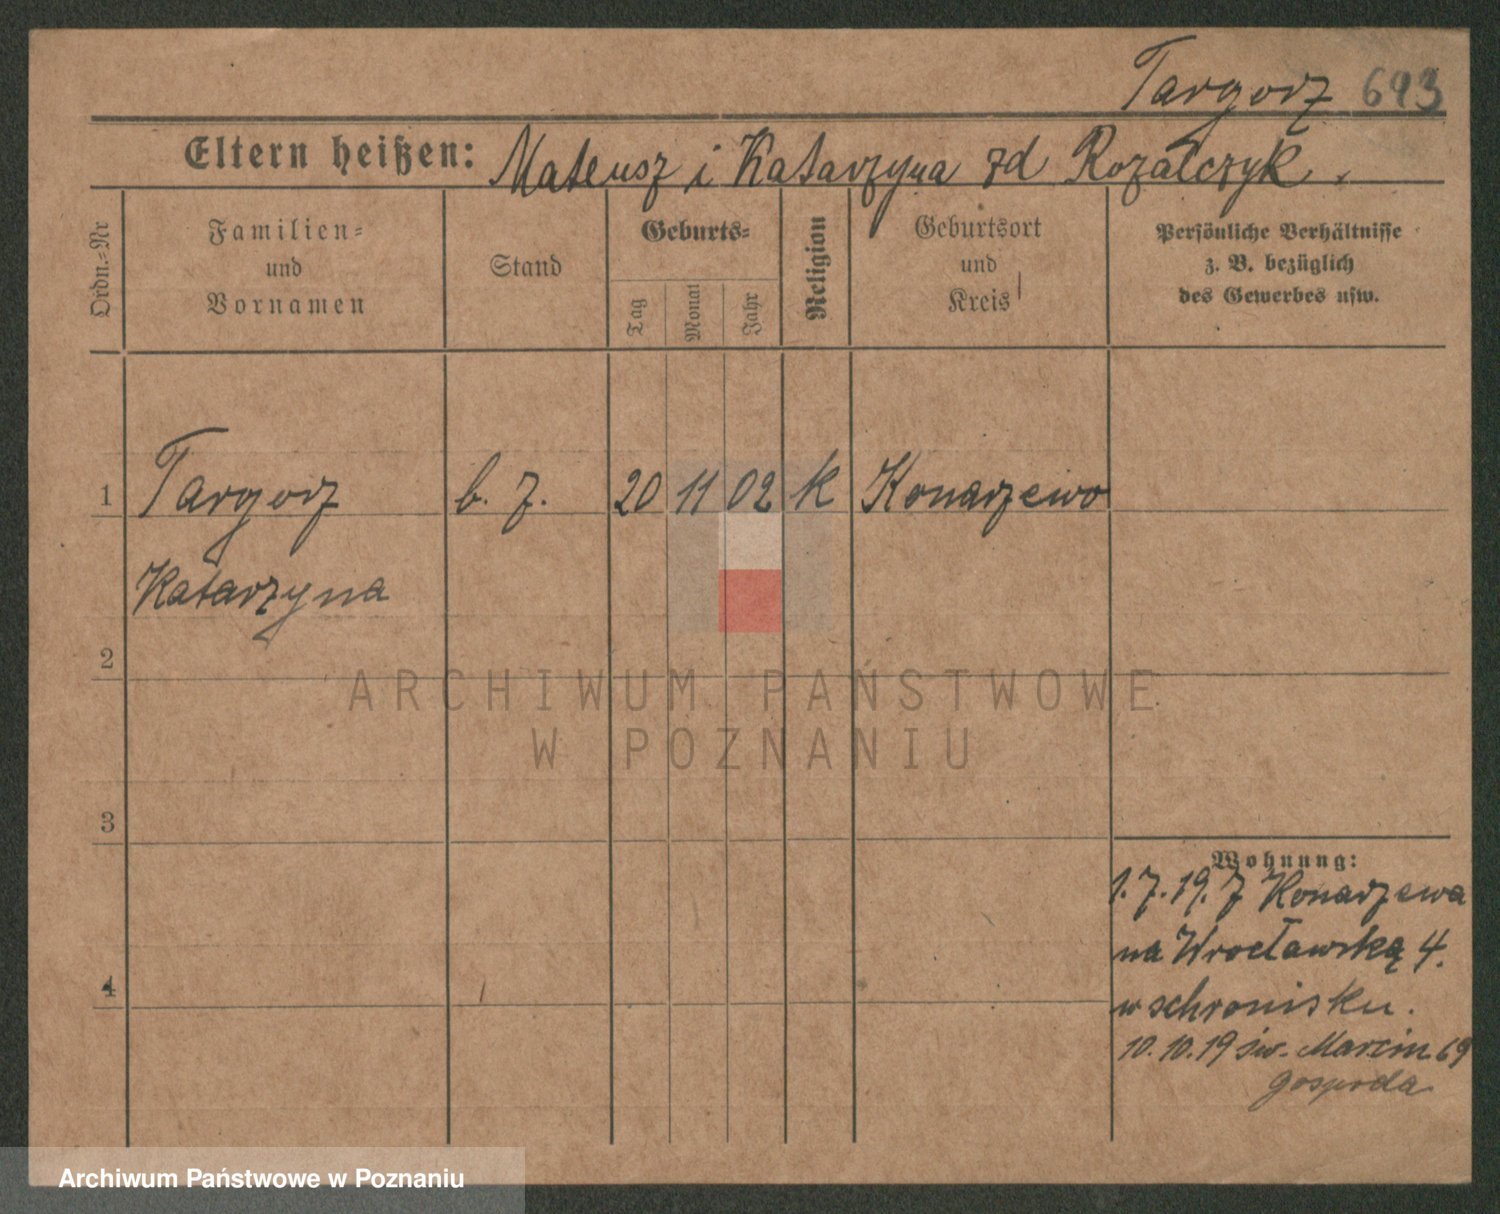 Targorz 693
Eltern heißen: Mateusz i Katarzyna zd Rozalczyk.
Ordn.-Nr
Familien-
und
Vornamen
Stand
Geburts-
Tag
Monat
Jahr
Religion
Geburtsort
und
Kreis
Persönliche Verhältnisse
z. B. bezüglich
des Gewerbes usw.
1 Targorz b. z. 20 11 02 k Konarzewo
Katarzyna
2
ARCHIWUM PAŃSTWOWE
W POZNANIU
3
Wohnung:
1.7.19. z Konarzewa
na Wrocławską 4.
w schronisku.
4
10.10.19 św. Marcin 69
gospoda
Archiwum Państwowe w Poznaniu